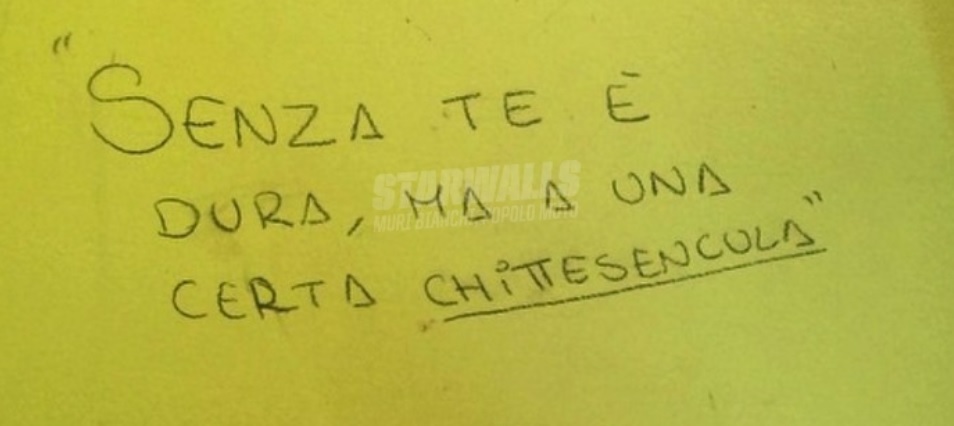 "SENZA TE È
DURA, MA A UNA
CERTA CHITTESENCULA"
STARWALLS
MURI BIANCHI POPOLO MUTO